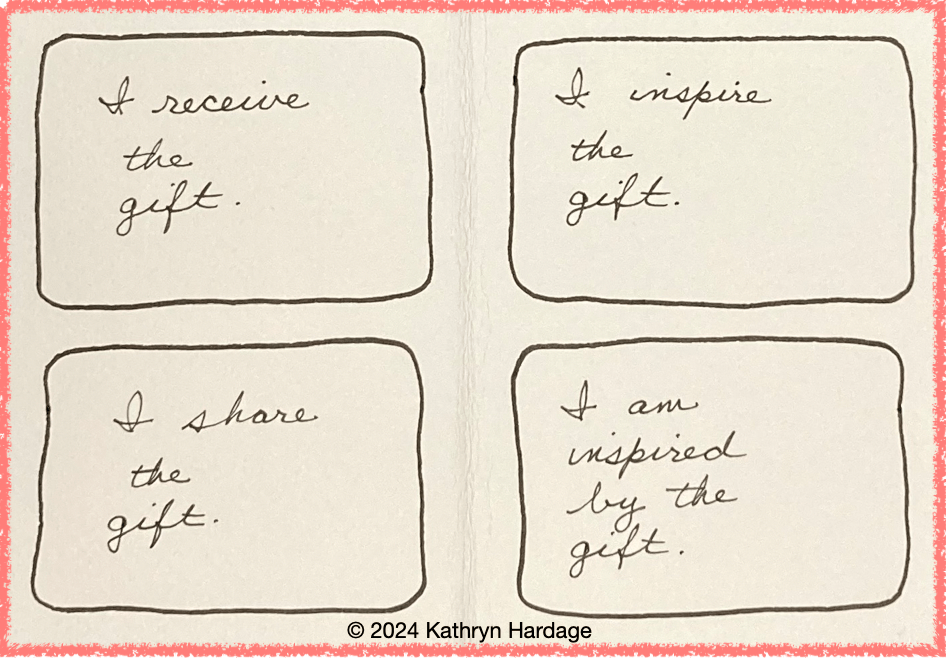 I receive
the
gift.
I inspire
the
gift.
I share
the
gift.
I am
inspired
by the
gift.
© 2024 Kathryn Hardage